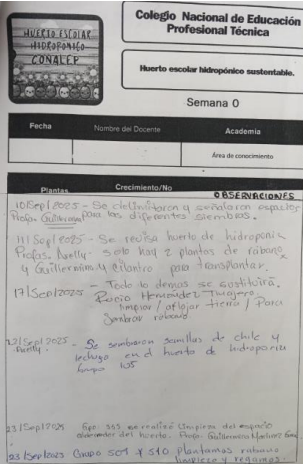 HUERTO ESCOLAR
HIDROPONICO
CONALEP
Colegio Nacional de Educación
Profesional Técnica
Huerto escolar hidropónico sustentable.
Semana 0
Fecha
Nombre del Docente
Academia
Área de conocimiento
Plantas
Crecimiento/No
OBSERVACIONES
10/Sep/2025 - Se delimitaron y señalaron espacios
Profa. Guillermina para las diferentes siembras.
11/Sep/2025 - Se revisa huerto de hidroponia
Profas. solo hay 2 plantas de rabano
y Guillermina y cilantro para transplantar.
17/Sep/2025 - Todo lo demas se sustituirá.
Rocio Hernández
limpiar / aflojar tierra / Para
Sembrar rabano
22/Sep/2025 - Se sembraron semillas de chile y
lechuga en el huerto de hidroponia
Grupo 105
23/Sep/2025 Gpo. se realizó limpieza del espacio
alrededor del huerto. Profa. Guillermina Martinez
23/Sep/2025 Grupo 509 y 510 plantamos rabano
limpieza y regamos.